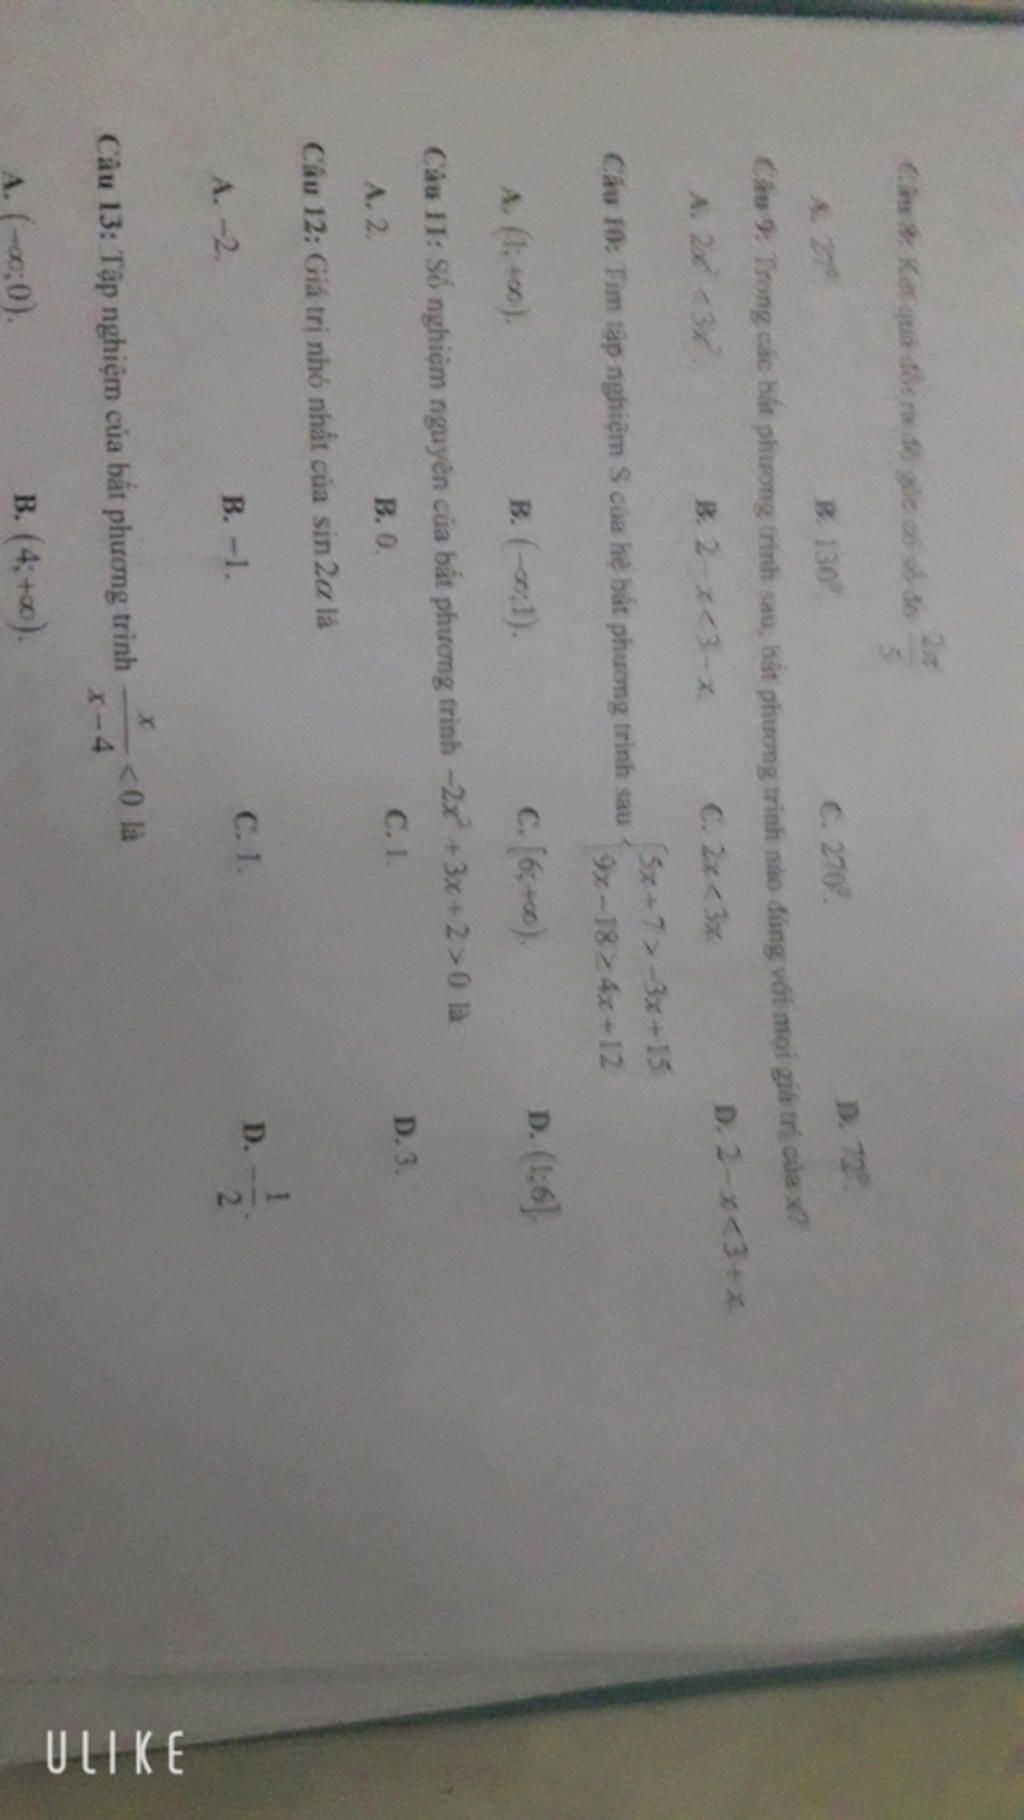 Câu 8: Kết quả đổi ra độ góc có số đo 2π/5
A. 27⁰. B. 130⁰. C. 270⁰. D. 72⁰.
Câu 9: Trong các bất phương trình sau, bất phương trình nào đúng với mọi giá trị của x?
A. 2x² < 3x². B. 2 − x < 3 − x. C. 2x < 3x. D. 2 − x < 3 + x.
Câu 10: Tìm tập nghiệm S của hệ bất phương trình sau { 5x + 7 > −3x + 15
9x − 18 ≥ 4x + 12
A. (1; +∞). B. (−∞; 1). C. [6; +∞). D. (1; 6].
Câu 11: Số nghiệm nguyên của bất phương trình −2x² + 3x + 2 > 0 là
A. 2. B. 0. C. 1. D. 3.
Câu 12: Giá trị nhỏ nhất của sin 2α là
A. −2. B. −1. C. 1. D. −1/2.
Câu 13: Tập nghiệm của bất phương trình x/(x − 4) < 0 là
A. (−∞; 0). B. (4; +∞).
ULIKE